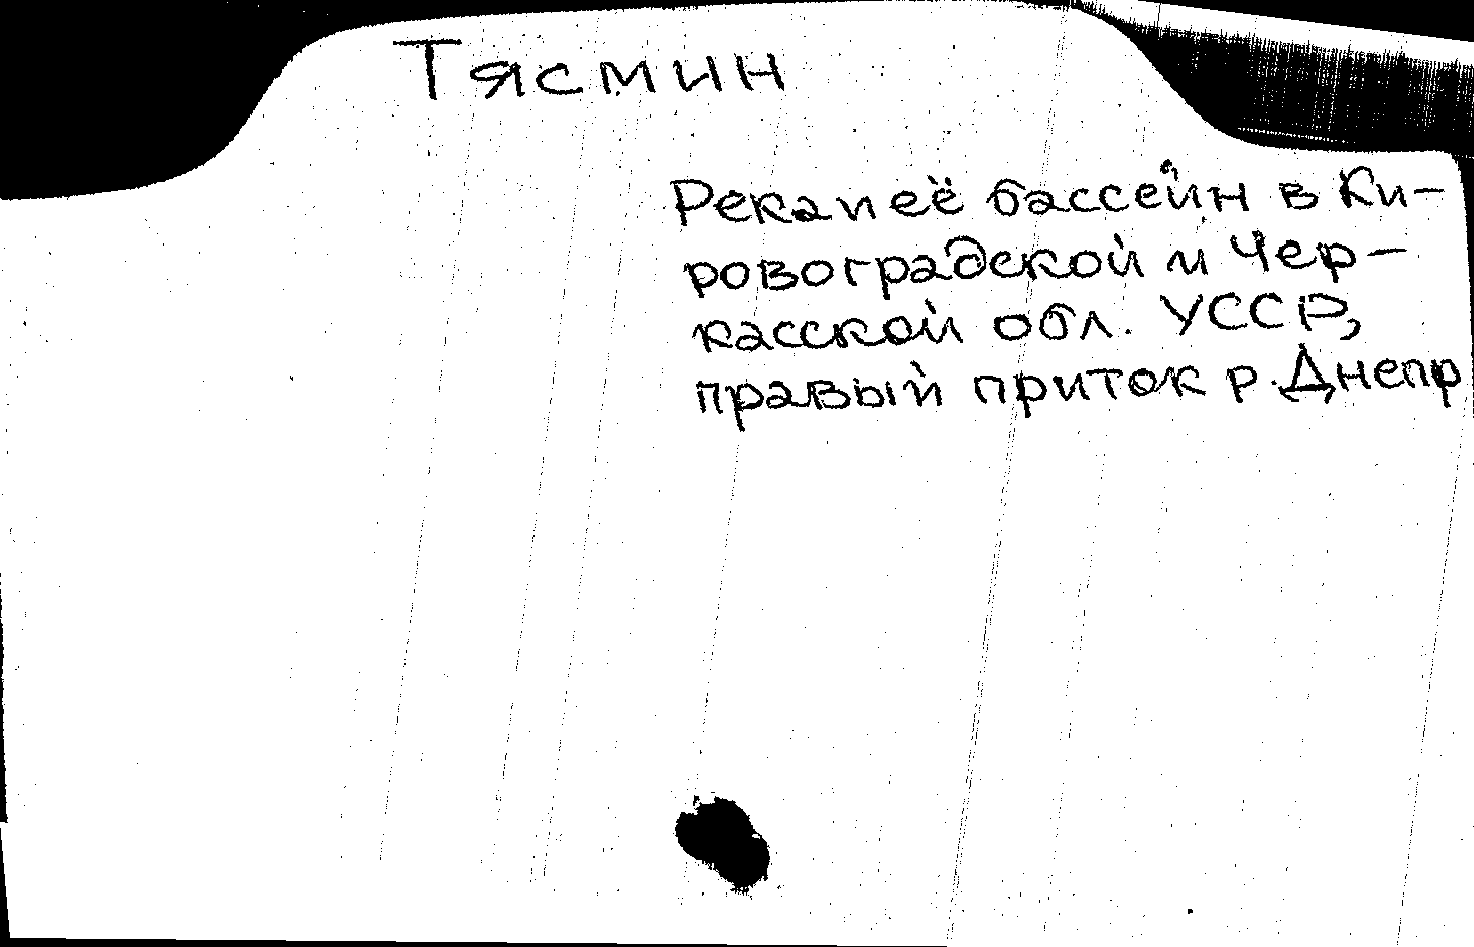 Тясмин
Река и её бассейн в Ки-
ровоградской и Чер-
касской обл. УССР,
правый приток р. Днепр